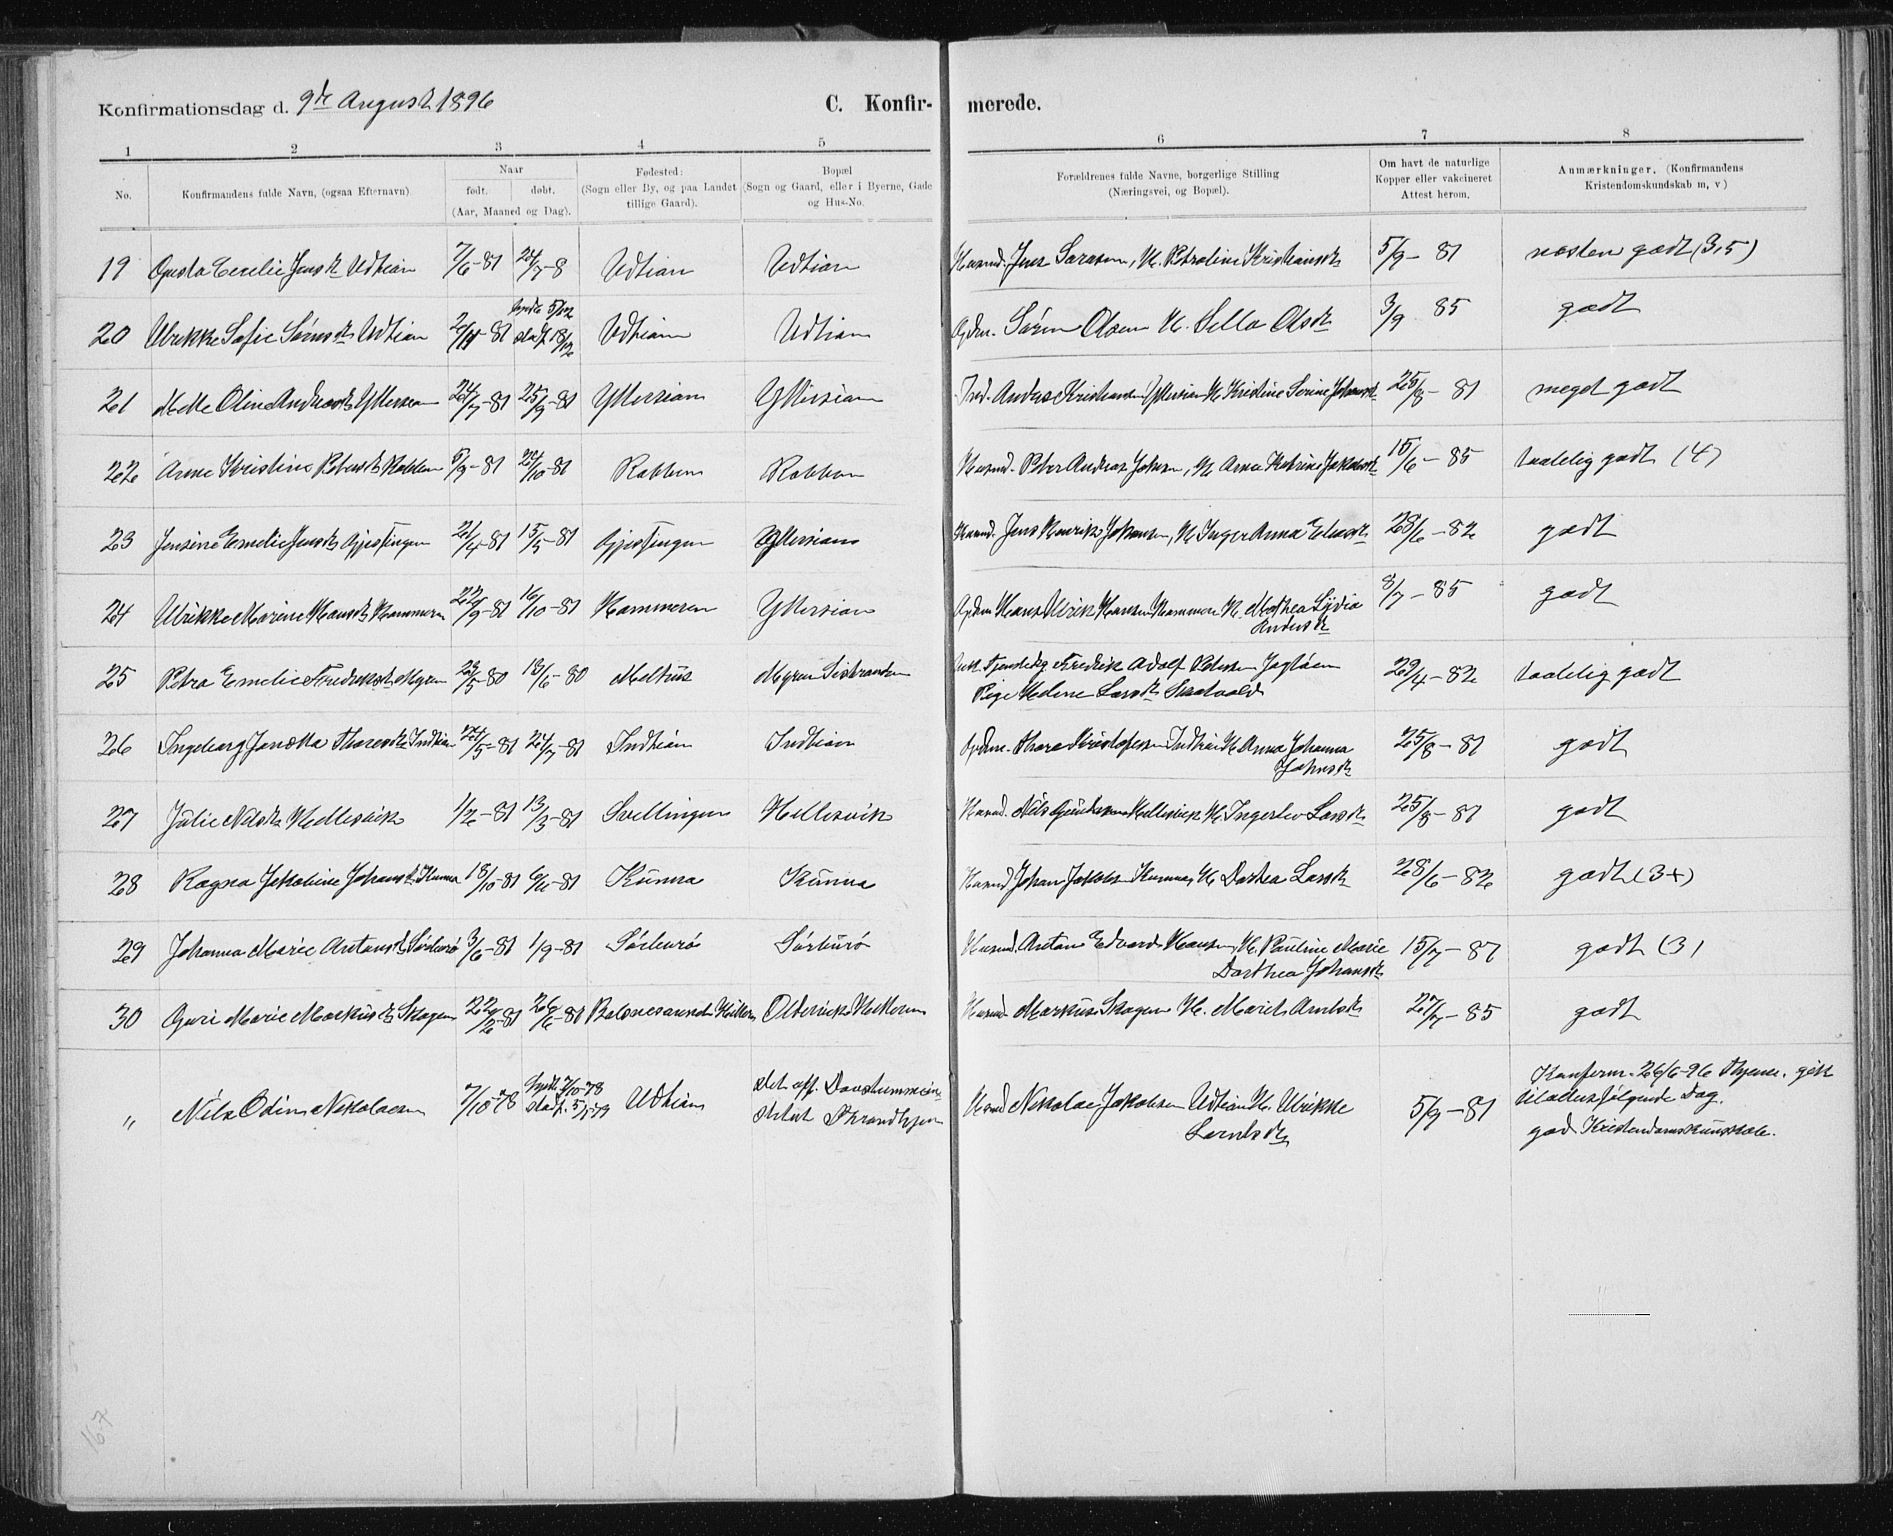 Konfirmationsdag d. 9de August 1896 C. Konfir- merede.
1 2 3 4 5 6 7 8
No. Konfirmandens fulde Navn, (ogsaa Efternavn) Naar født. døbt. (Aar, Maaned og Dag). Fødested: (Sogn eller By, og paa Landet tillige Gaard). Bopæl (Sogn og Gaard, eller i Byerne, Gade og Hus-No. Forældrenes fulde Navne, borgerlige Stilling (Næringsvei, og Bopæl). Om havt de naturlige Kopper eller vakcineret Attest herom. Anmærkninger. (Konfirmandens Kristendomskundskab m, v)
19 Gusta Cecilie Jensdt Udtian 7/6-81 24/7-8 Udtian Udtian Husmd. Jens Sørensen, H. Petroline Kristiansdt 5/9-81 næsten godt (3,5)
20 Ulrikke Sofie Sørensdt Udtian 2/11-81 5/12 stadf. 18/12 Udtian Udtian Gdm. Søren Olsen H. Sella Olsdt 3/9 85 godt
21 Mette Oline Andersdt Yttersian 24/7-81 25/9-81 Yttersian Yttersian Anders Kristiansen Yttersian H. Kristine Serine Johansdt 25/8-81 meget godt
22 Anne Kristine Petersdt Rabben 5/9-81 24/10-81 Rabben Rabben Husmd. Peter Andreas Johnsen, H. Anne Katrine Jakobsdt 15/6-85 taalelig godt (4)
23 Jensine Emelie Jensdt Gjessingen 21/4-81 15/5-81 Gjessingen Yttersian Husmd. Jens Henrik Johansen, H. Inger Anna Eliasdt 28/6-82 godt
24 Ulrikke Marine Hansdt Hammeren 22/9-81 16/10-81 Hammeren Yttersian Gdm Hans Ulrik Hansen Hammeren H. Mathea Lydia Andersdt 8/7-85 godt
25 Petra Emelie Fredriksdt Myren 23/5-80 13/6-80 Melhus Myren Sistranden Fredrik Adolf Petersen Pige Helene Larsdt Skatvold 29/4-82 taalelig godt
26 Ingeborg Janetta Thoresdt Indtian 24/5-81 24/7-81 Indtian Indtian Gdm. Thore Kristofersen Indtian H. Anna Johanna Johnsdt 25/8-81 godt
27 Julie Nilsdt Hellesvik 1/2-81 13/3-81 Svellingen Hellesvik Husmd. Nils Hellesvik H. Ingerlev Larsdt 25/8-81 godt
28 Ragna Jakobine Johansdt Kunna 18/10-81 6/11-81 Kunna Kunna Husmd Johan Jakobs. Kunna, H. Dorthea Larsdt 28/6-82 godt (3+)
29 Johanna Marie Antonsdt Sørburø 3/6-81 1/9-81 Sørburø Sørburø Husmd. Anton Edvard Hansen, H. Pauline Marie Dorthea Johansdt 15/7-87 godt (3)
30 Guri Marie Markusdt Skagen 22/2-81 26/6-81 Balsnesaunet Hittern Olderviken Hitteren Husmd. Markus Skagen H. Marit Arntsdt 27/7-85 godt
" Nils Odin Nikolaisen 7/10-78 7/10-78 stadf. 5/1-79 Udtian det off. Døvstummein- stitut Throndhjem Husmd Nikolai Jakobsen Udtian H. Ulrikke Larntsdt 5/9-81 Konfirm. 26/6-96 Thjem. gik tilalters følgende Dag. god Kristendomskundskab.
167